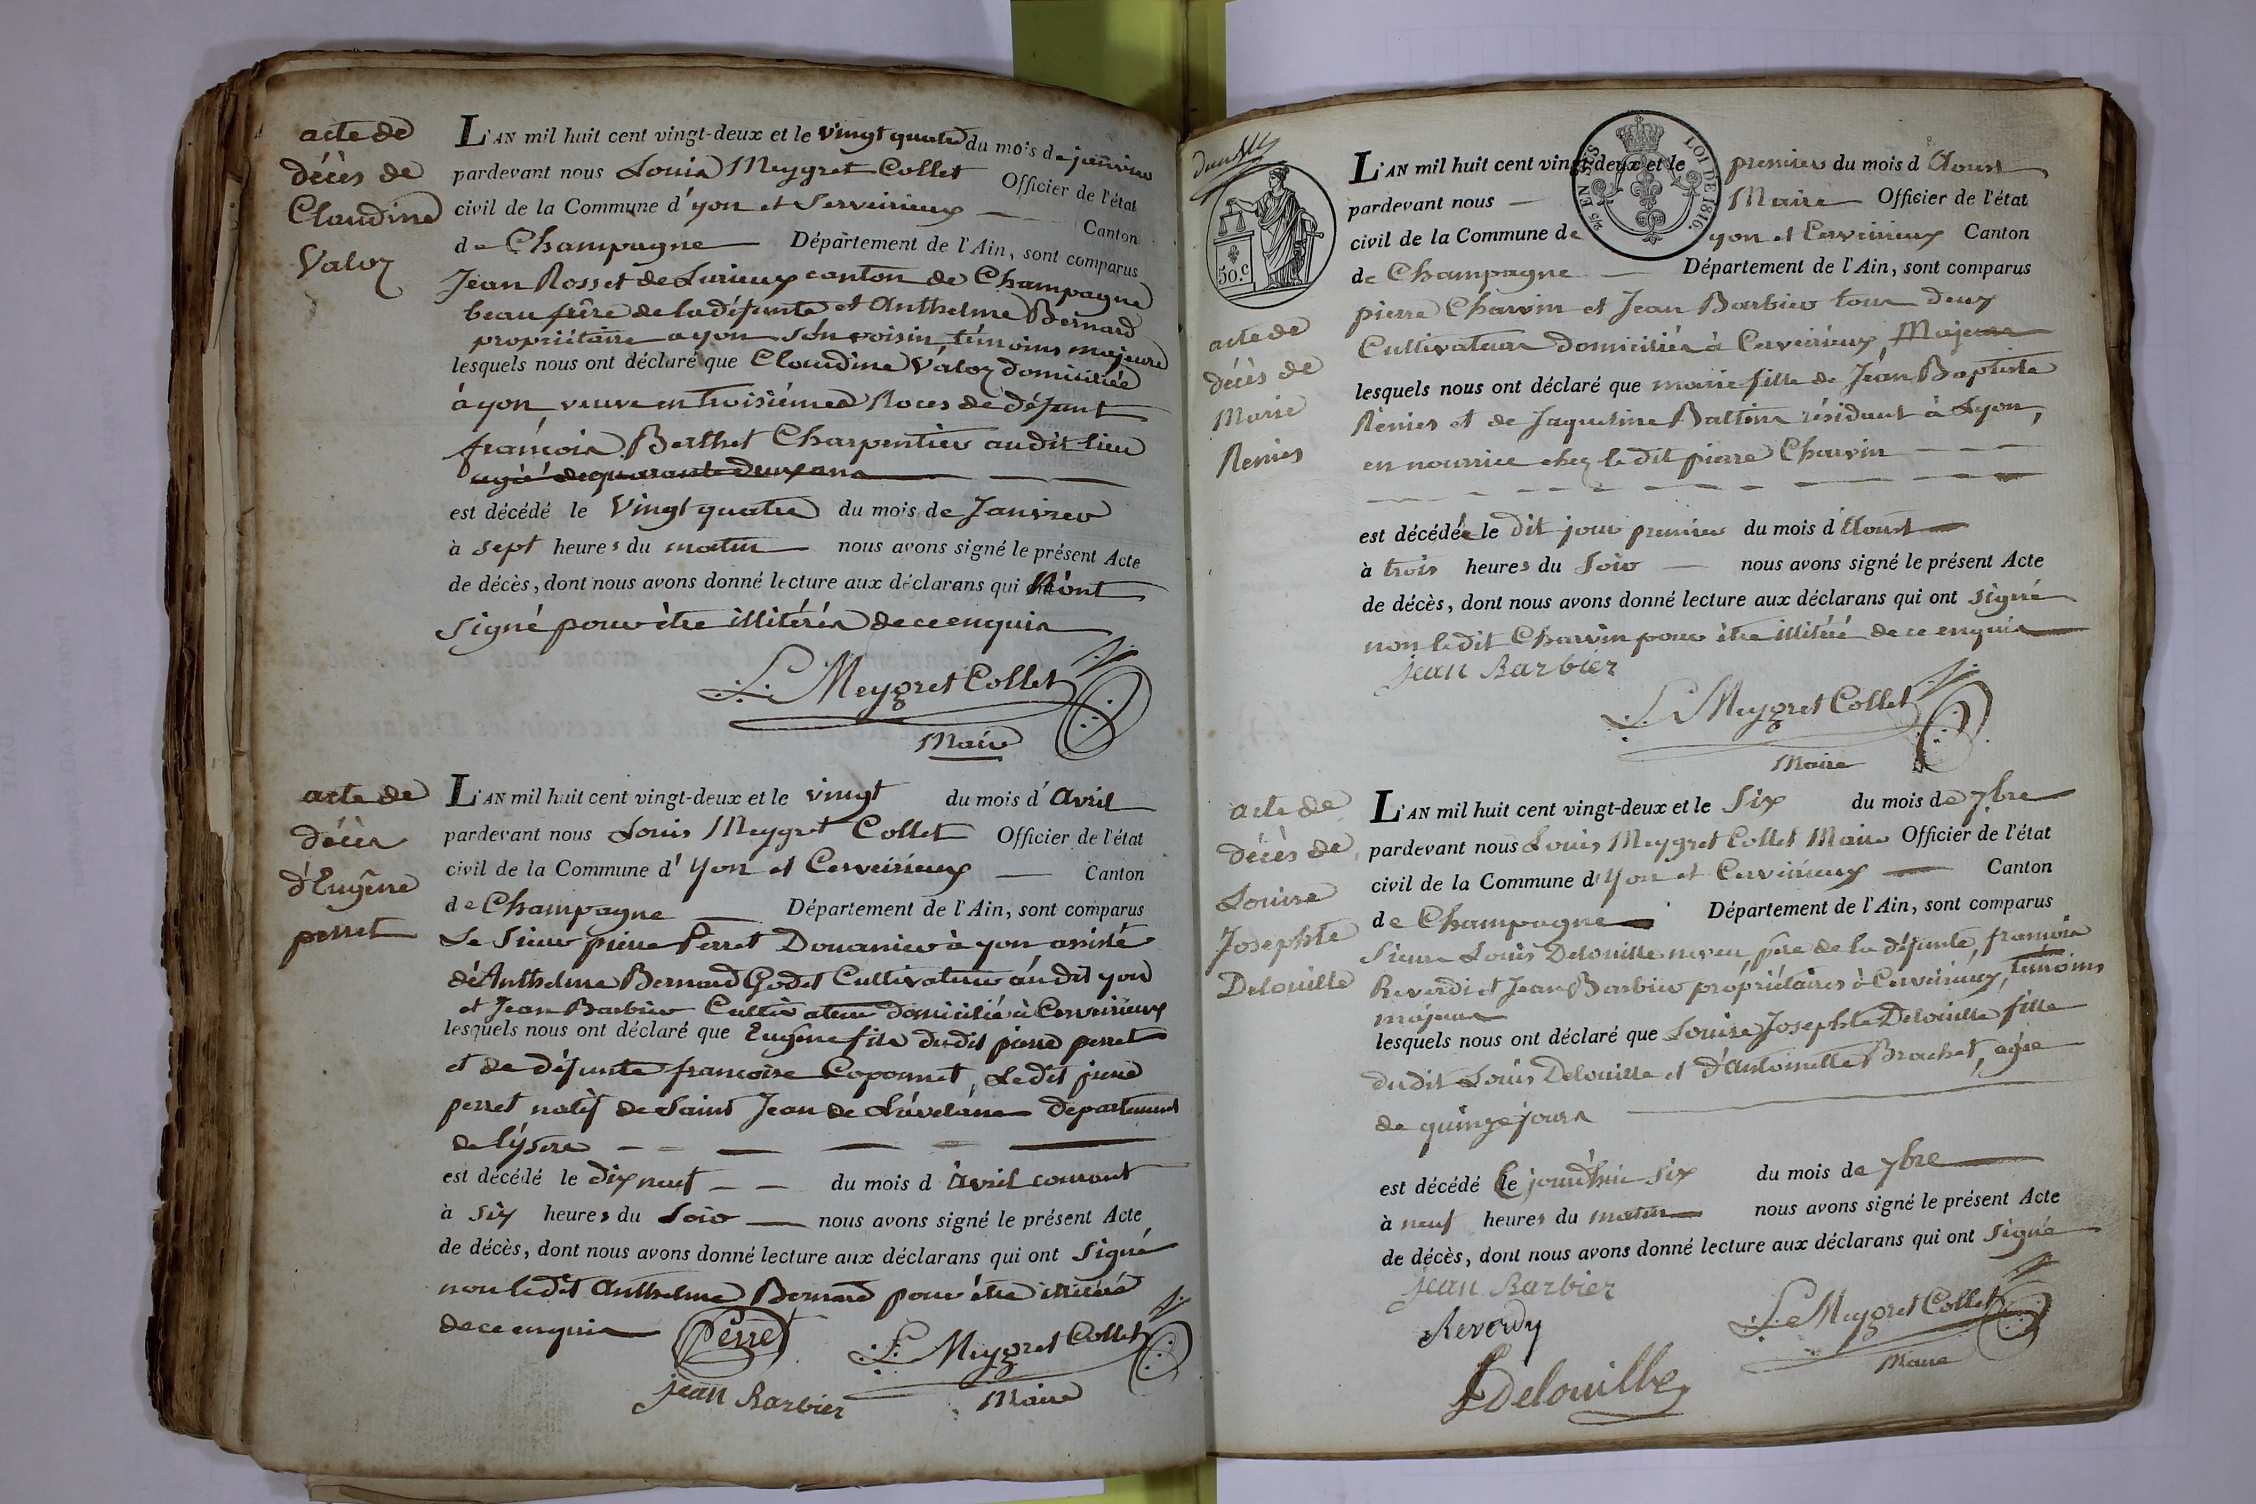 acte de
décès de
Claudine
Valoz
L'AN mil huit cent vingt-deux et le vingt quatre du mois de janvier
pardevant nous Louis Meygret Collet Officier de l'état
civil de la Commune d'yon et Serveirieux Canton
de Champagne Département de l'Ain, sont comparus
Jean Rosset de Lurieux canton de Champagne
beau frère de la défunte et Anthelme Bernard
propriétaire a yon son voisin, témoins majeurs
lesquels nous ont déclaré que Claudine Valoz domiciliée
à yon veuve en troisièmes Noces de défunt
françois Berthet Charpentier audit lieu
agée de quarante deux ans
est décédé le Vingt quatre du mois de Janvier
à sept heures du matin nous avons signé le présent Acte
de décès, dont nous avons donné lecture aux déclarans qui N'ont
signé pour être illitérés de ce enquis
L. Meygret Collet
Maire
acte de
décès
d'Eugêne
perret
L'AN mil huit cent vingt-deux et le vingt du mois d'avril
pardevant nous Louis Meygret Collet Officier de l'état
civil de la Commune d'Yon et Cerveirieux Canton
de Champagne Département de l'Ain, sont comparus
Le Sieur pierre Perret Douanier à yon assisté
d'Anthelme Bernard Godet Cultivateur au dit yon
et Jean Barbier Cultivateur domicilié à Cerveirieux
lesquels nous ont déclaré que Eugêne fils dudit pierre perret
et de défunte francoise Coponnet, Ledit pierre
perret natif de Saint Jean de Lavelane departement
de l'ysere
est décédé le dix neuf du mois d'avril courant
à six heures du soir nous avons signé le présent Acte
de décès, dont nous avons donné lecture aux déclarans qui ont signé
non le dit Anthelme Bernard pour être illitéré
de ce enquis Perret L. Meygret Collet
jean Barbier Maire
50.c
2/5 EN SUS LOI DE 1816.
acte de
décès de
Marie
Renies
L'AN mil huit cent vingt-deux et le premier du mois d'Aoust
pardevant nous Maire Officier de l'état
civil de la Commune de yon et Cerveirieux Canton
de Champagne Département de l'Ain, sont comparus
pierre Charvin et Jean Barbier tous deux
Cultivateurs domiciliés à Cerveirieux, Majeurs
lesquels nous ont déclaré que marie fille de Jean Baptiste
Renies et de Jaqueline Battin résidant à Lyon,
en nourrice chez le dit pierre Charvin
est décédée le dit jour premier du mois d'Aoust
à trois heures du soir nous avons signé le présent Acte
de décès, dont nous avons donné lecture aux déclarans qui ont signé
non le dit Charvin pour être illitéré de ce enquis
jean Barbier
L. Meygret Collet
Maire
acte de
décès de
Louise
Josephte
Delouille
L'AN mil huit cent vingt-deux et le Six du mois de 7bre
pardevant nous Louis Meygret Collet Maire Officier de l'état
civil de la Commune d'Yon et Cerveirieux Canton
de Champagne Département de l'Ain, sont comparus
Sieurs Louis Delouille neveu, père de la défunte, françois
Reverdi et Jean Barbier propriétaires à Cerveirieux, témoins
majeurs
lesquels nous ont déclaré que Louise Josephte Delouille fille
du dit Louis Delouille et d'Antoinette Brachet, agée
de quinze jours
est décédé Ce jourd'hui six du mois de 7bre
à neuf heures du matin nous avons signé le présent Acte
de décès, dont nous avons donné lecture aux déclarans qui ont signé
jean Barbier
Reverdy L. Meygret Collet
Maire
Delouille